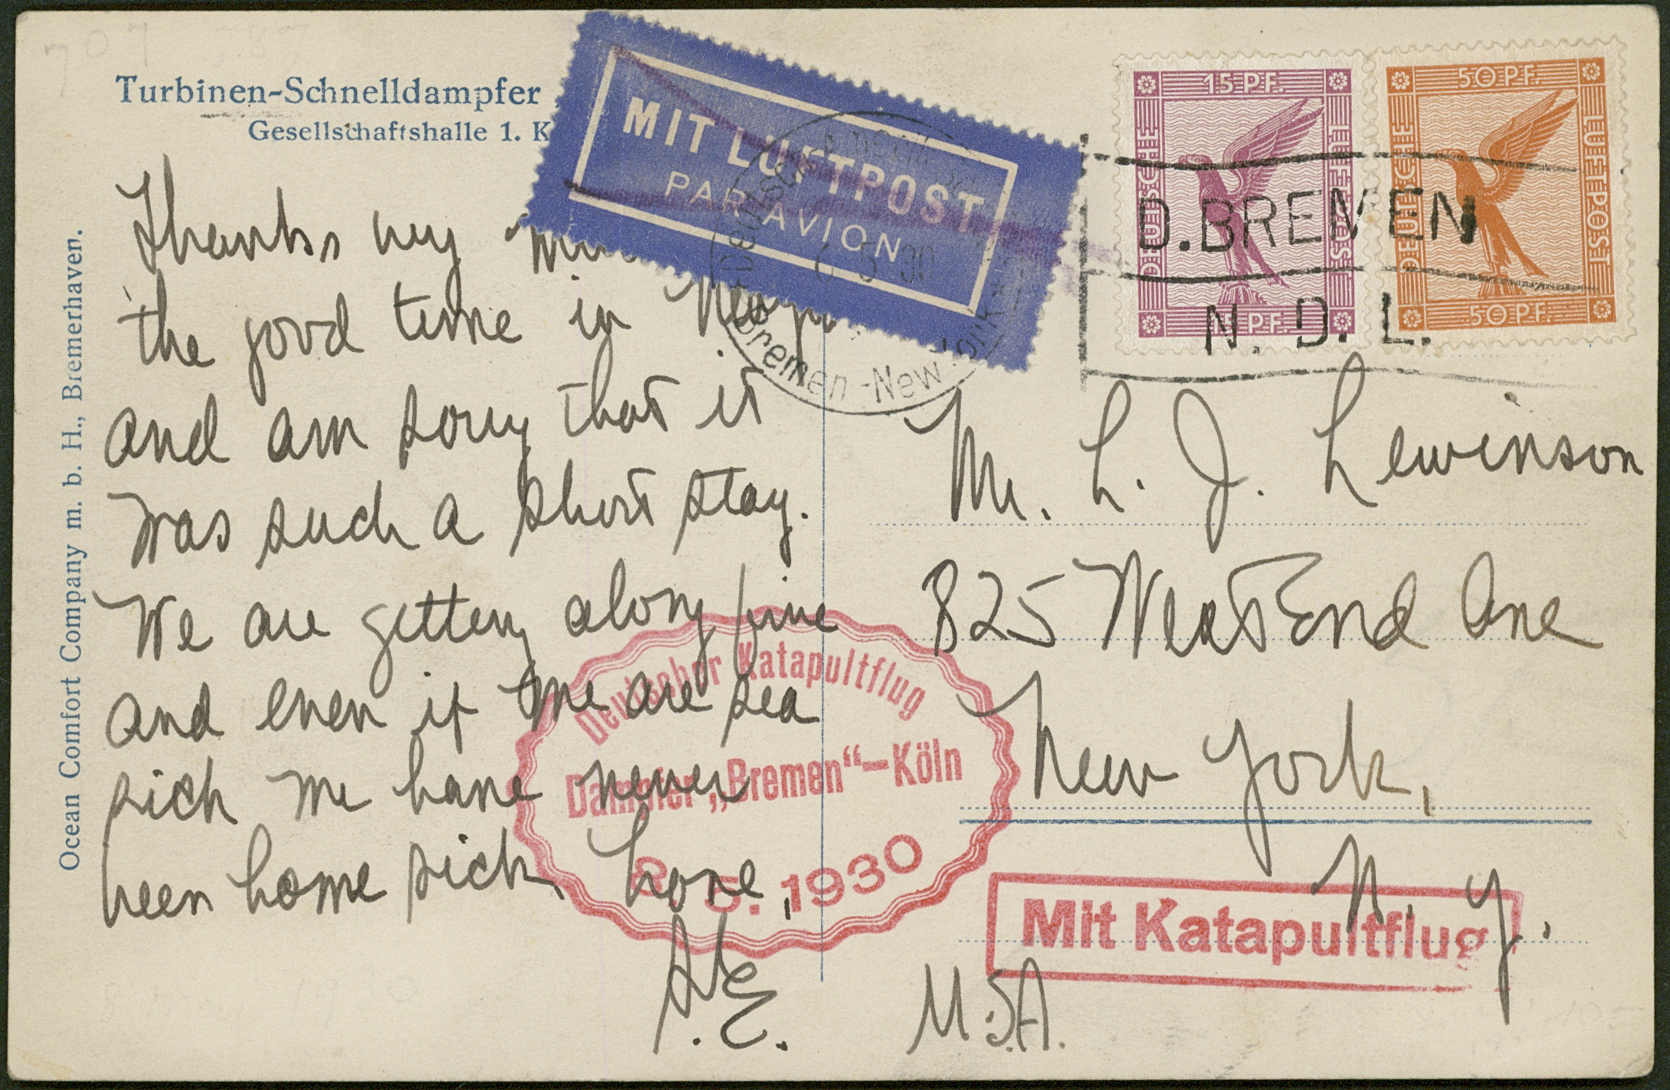 Turbinen-Schnelldampfer
Gesellschaftshalle 1. K
Ocean Comfort Company m. b. H., Bremerhaven.
MIT LUFTPOST
PAR AVION
15 PF.
DEUTSCHE
LUFTPOST
PF.
50 PF.
DEUTSCHE
LUFTPOST
50 PF.
D. BREMEN
N. D. L.
5 30
Bremen-New York
Thanks my
the good time in New
and am sorry that it
was such a short stay.
We are getting along fine
and even if we are sea
sick we have never
been home sick
Mr. L. J. Lewinson
825 West End Ave
New York,
N. Y.
U.S.A.
Deutscher Katapultflug
Dampfer „Bremen“–Köln
8. 5. 1930
Mit Katapultflug